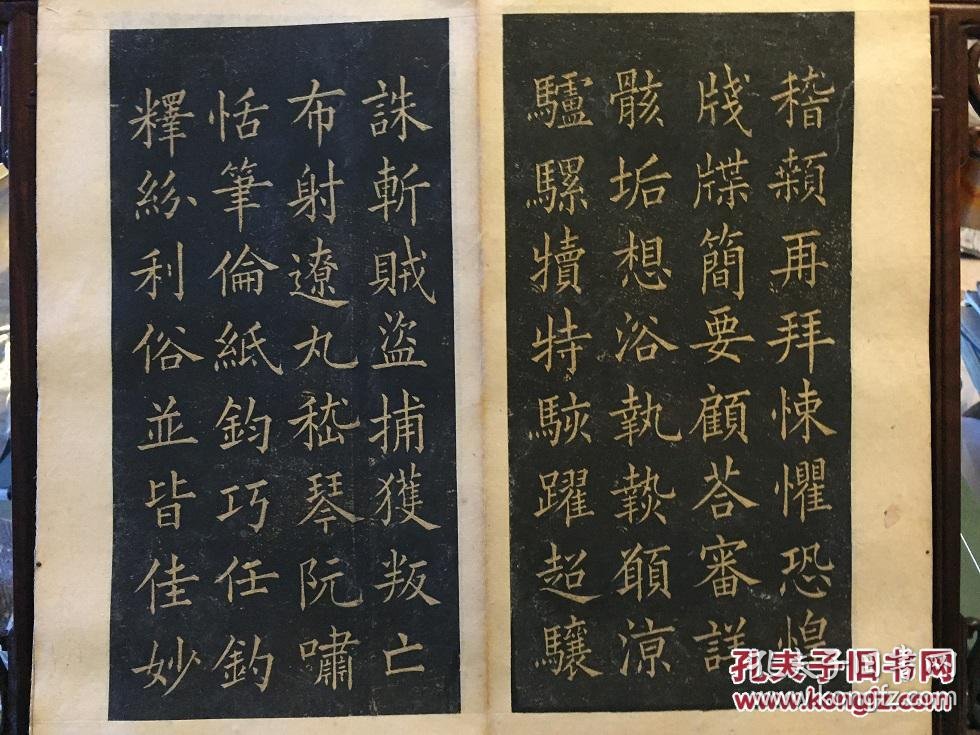 稽顙再拜悚懼恐惶
牋牒簡要顧荅審詳
骸垢想浴執熱願涼
驢騾犢特駭躍超驤
誅斬賊盜捕獲叛亡
布射遼丸嵇琴阮嘯
恬筆倫紙鈞巧任釣
釋紛利俗並皆佳妙
孔夫子旧书网
www.kongfz.com